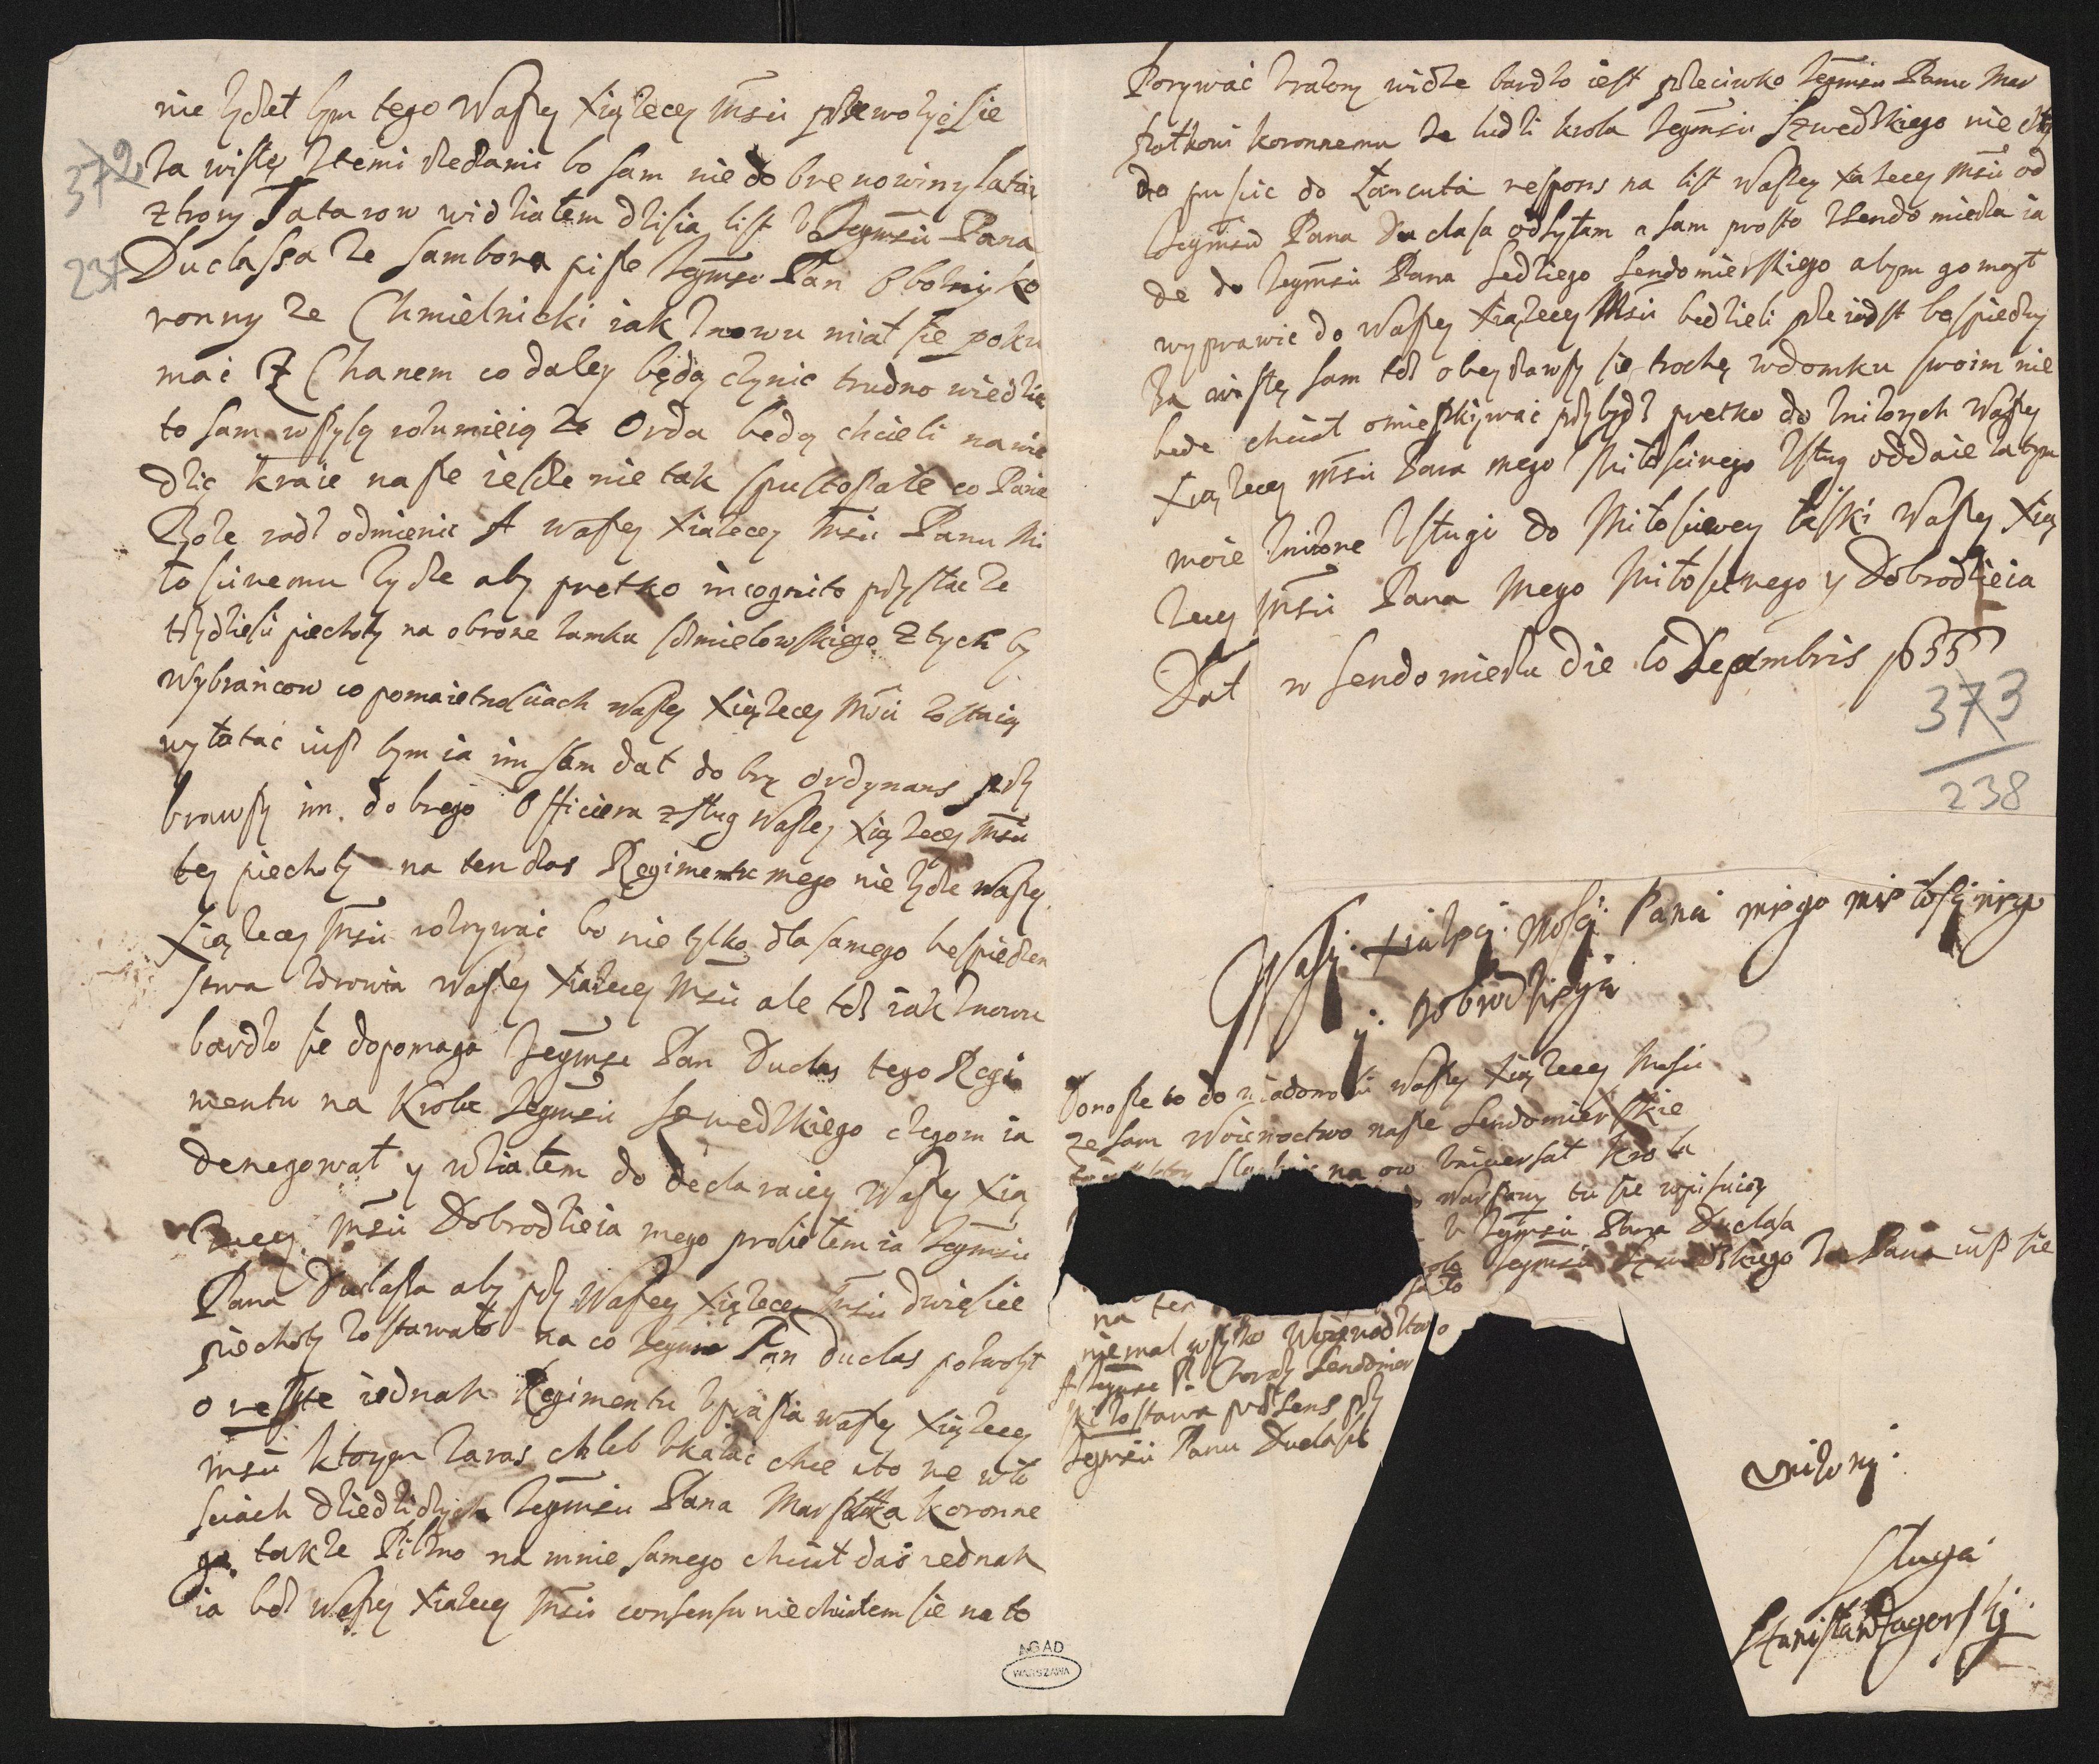 nie zyczet bym tego Waszey Xiązecey Mści przewozic sie
372
za wisłę z temi rzeczami bo sam nie dobre nowiny latai
z strony Tatarow widziałem dzisia list v Jegmści Pana
237
Duclassa ze Sambora pisze Jegmsc Pan Obozny ko
ronny ze Chmielnicki iak znowu miał sie poku
mac z Chanem co daley będą czynic trudno wiedzie
to sam wszyscy rozumieią ze Orda będą chcieli nawie
dzic kraie nasze ieszcze nie tak spustoszałe co Panie
Boze racz odmienic A waszey Xiązecey Mści Panu Mi
łosciwemu zycze aby pretko incognito przysłac ze
trzydziesci piechoty na obrone zamku Cmielowskiego z tych by
Wybrancow co po maietnosciach waszey Xiązecey Mści zostaią
wyłatac iusz bym ia im sam dał dobry ordynans przy
brawszy im dobrego Officiera z sług Waszey Xiązecey Mści
tey piechoty na ten czas Regimentu mego nie zycze waszey
Xiązecey Mści rozrywac bo nie tylko dla samego bespieczen
stwa zdrowia Waszey Xiązecey Mści ale tesz iak znowu
bardzo sie dopomaga Jegmsc Pan Duclas tego Regi
mentu na Krola Jegmści Szwedzkiego czegom ia
denegował y wziałem do declaraciey Waszey Xią
zecey Mści Dobrodzieia mego prosiłem ia Jegmści
Pana Duclasa aby przy Waszey Xiązecey Mści dwiescie
piechoty zostawało na co Jegmsc Pan Duclas pozwolył
o reszte iednak Regimentu vprasza waszey Xiązecey
mści ktorym zaras chleb vkazac chce ito we wło
sciach dziedzicznych Jegmści Pana Marszałka Koronne
go takze Pilzno na mnie samego chciał dac iednak
ia bez Waszey Xiązecey Mści consensu nie chciałem sie na to
Porywac vrazony widze bardzo iest przeciwko Jegmści Panu Mar
szałkowi koronnemu ze ludzi krola Jegmści Szwedzkiego nie chcą
do puscic do Łancuta respons na list Waszey Xiązecey Mści od
Jegmści Pana Duclasa odsyłam a sam prosto z Sendomierza ia
de do Jegmści Pana Sedziego Sendomierskiego abym go mogł
wyprawic do Waszey Xiązecey Mści bedzieli przeiazd bespieczny
za wisłę sam tesz obeyrzawszy sie trochę w domku swoim nie
bede chciał omieszkiwac przybydz pretko do vnizonych Waszey
Xiązecey Mści Pana mego Miłosciwego vsług oddaie zatym
moie vnizone vsługi do Miłosciwey łaski Waszey Xią
zecey Mści Pana Mego Miłosciwego y Dobrodzieia
Dat w Sendomierzu die 10 Decembris 1655
373
238
Waszy Xiazęcy Mosci Pana mego miłosciwego
y Dobrodzieja
Donosze to do wiadomosci Waszey Xiązecey Mosci
ze sam Woiewoctwo nasze Sendomierskie
na ow Vniversał Krola
Warszawy tu sie wpisuiey
v Jegmści Pana Duclasa
Jegmści Szwedzkiego za Pana iusz sie
na ten
niemal wszytko Woiewodztwo
A Jegmsc P. Chorązy Sendomier
ski zostawa presens przy
Jegmści Panu Duclasie
vnizony
sługa
Stanisław Zagorsky
AGAD
WARSZAWA